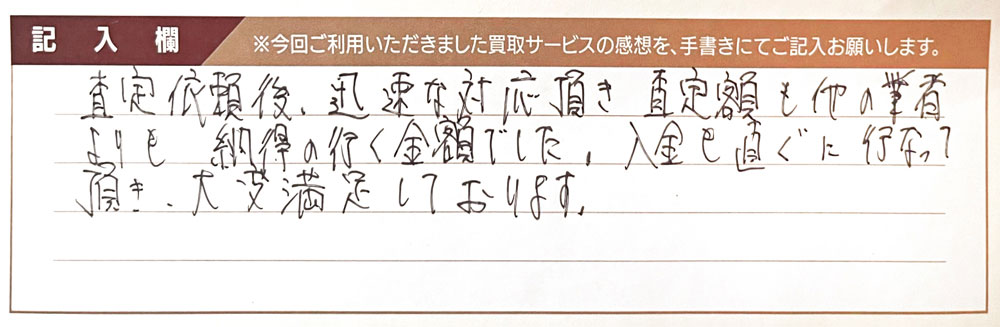 記入欄
※今回ご利用いただきました買取サービスの感想を、手書きにてご記入お願いします。
査定依頼後、迅速な対応頂き 査定額も他の業者
よりも 納得の行く金額でした。入金も直ぐに行なって
頂き、大変満足しております。